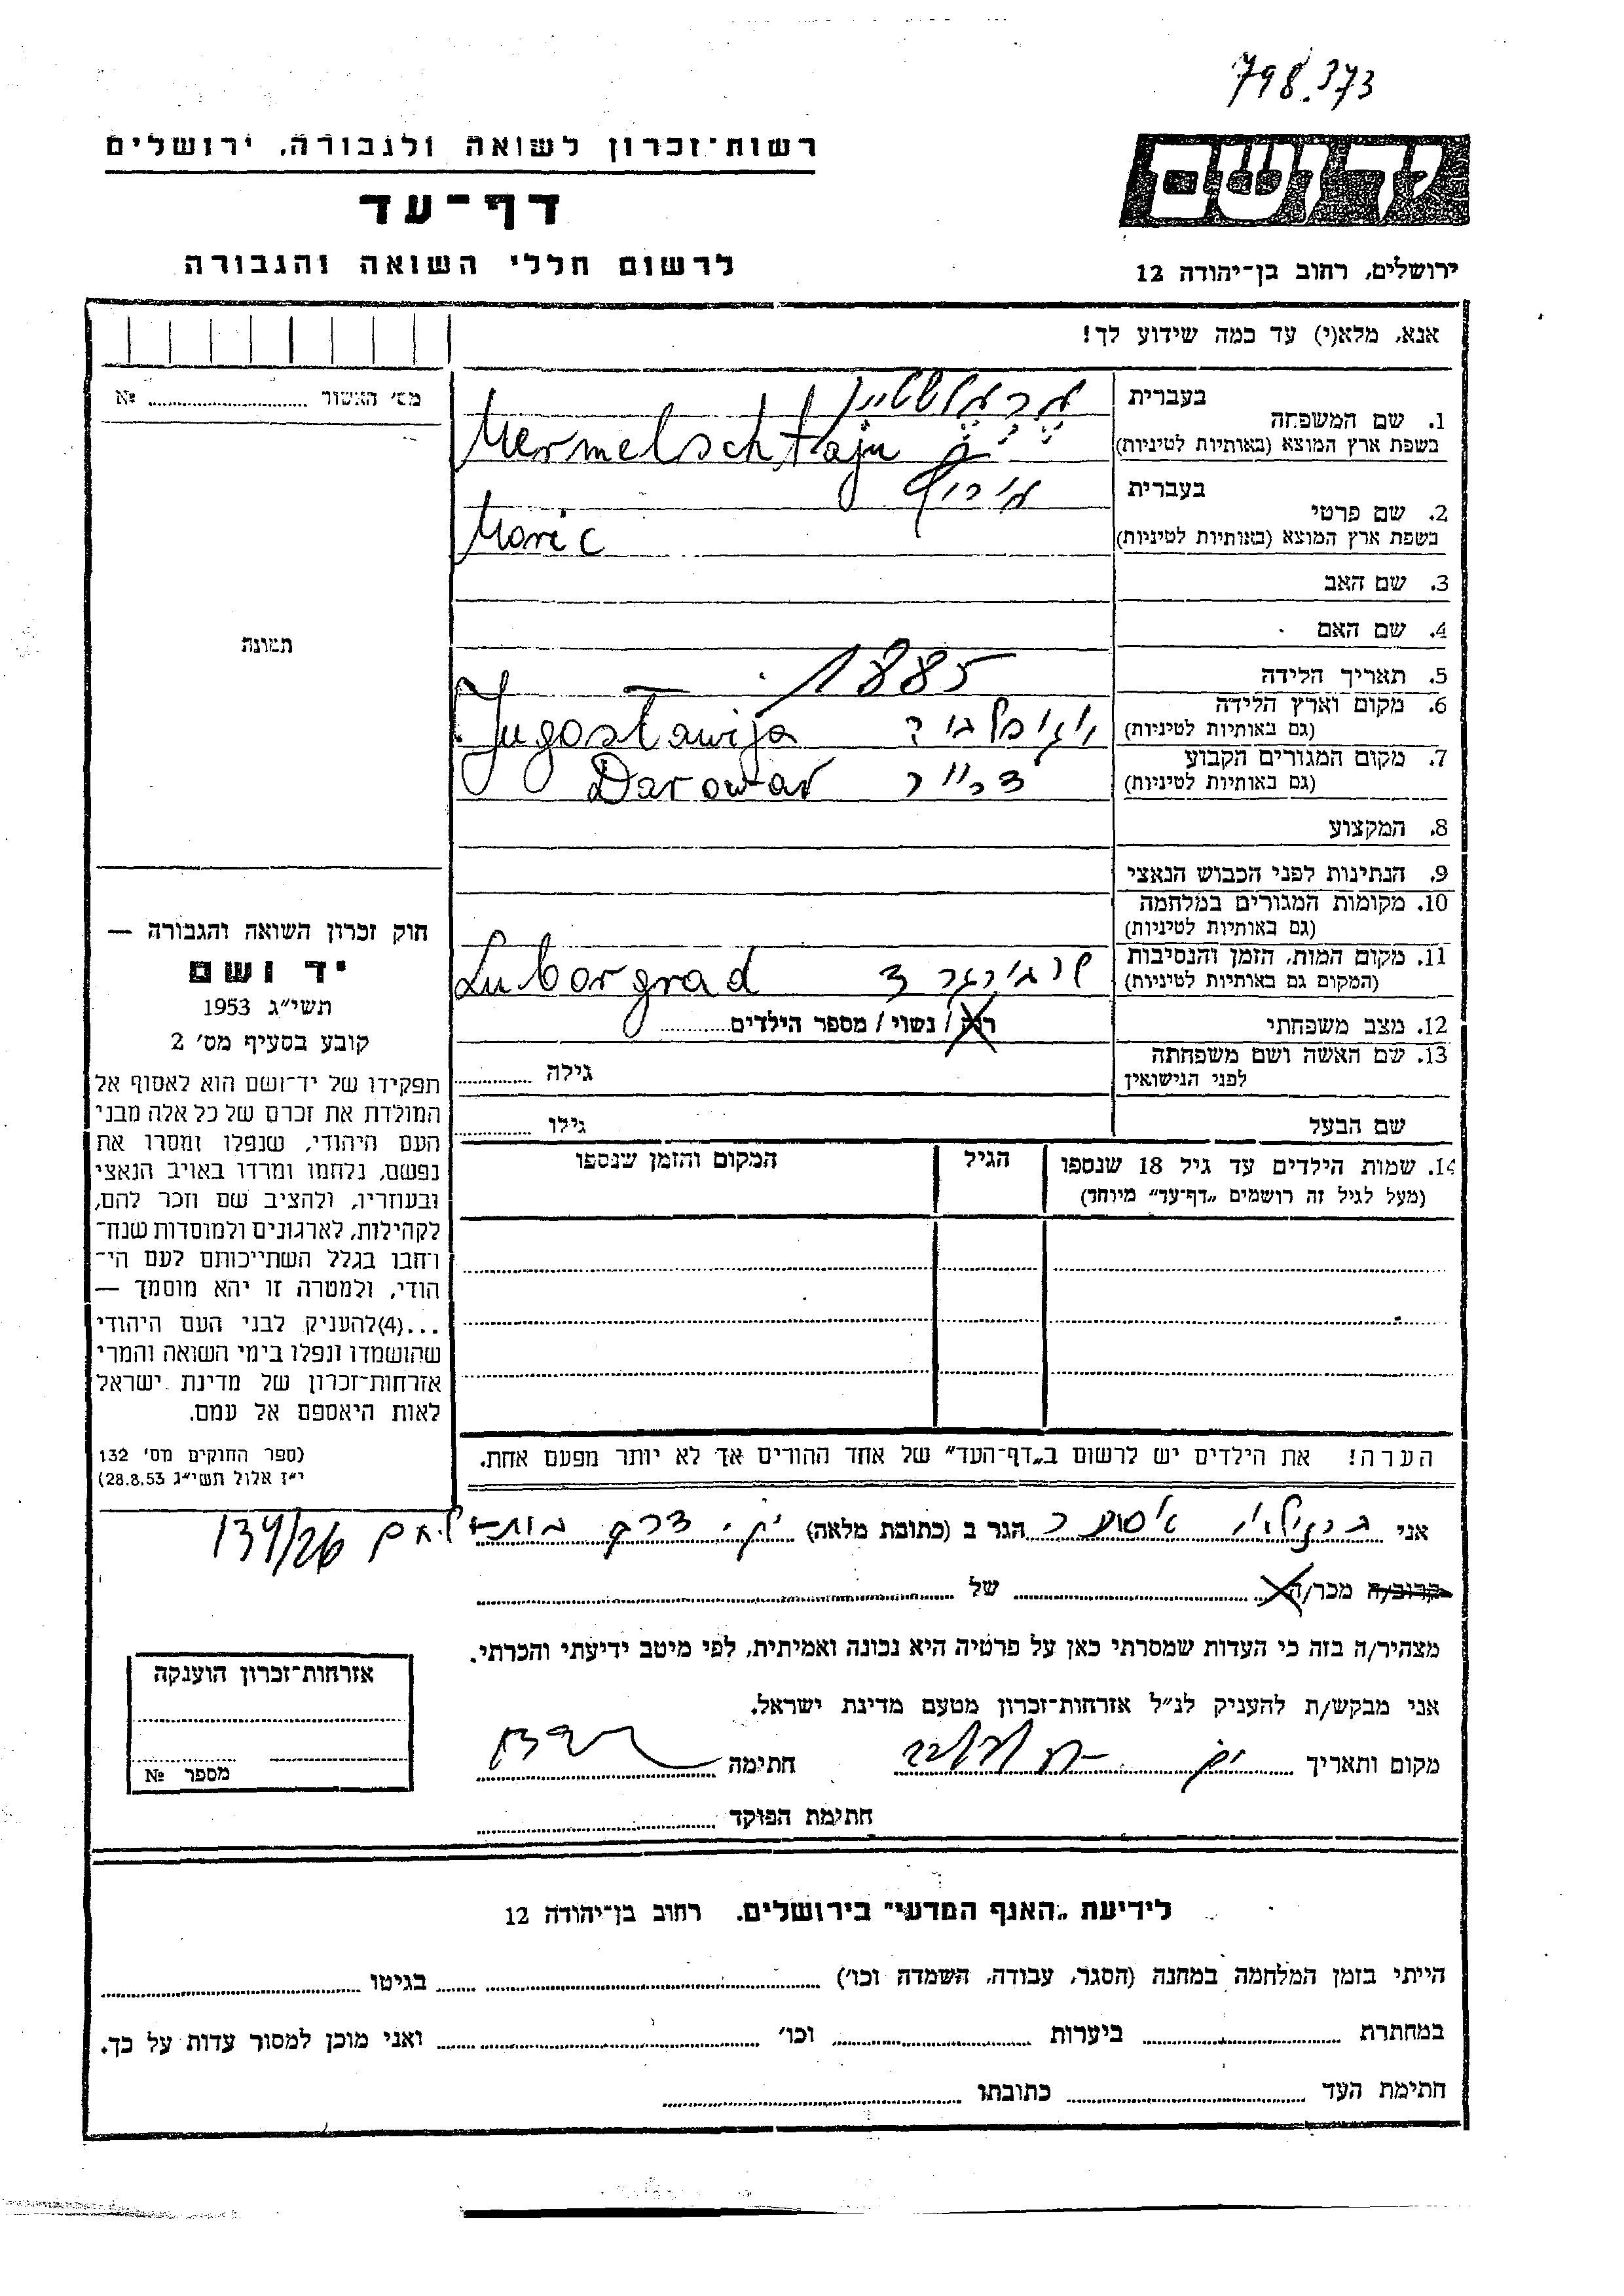 798.373
רשות־זכרון לשואה ולגבורה, ירושלים
דף־עד
לרשום חללי השואה והגבורה
יד ושם
ירושלים, רחוב בן־יהודה 12
אנא, מלא(י) עד כמה שידוע לך!
מס׳ האשור № ........
תמונה
1. שם המשפחה בעברית מרמלשטיין
בשפת ארץ המוצא (באותיות לטיניות) Mermelschtajn
2. שם פרטי בעברית
בשפת ארץ המוצא (באותיות לטיניות) Moric
3. שם האב
4. שם האם
5. תאריך הלידה 1885
6. מקום וארץ הלידה
(גם באותיות לטיניות) Jugoslawija
7. מקום המגורים הקבוע
(גם באותיות לטיניות) Darowar
8. המקצוע
9. הנתינות לפני הכבוש הנאצי
10. מקומות המגורים במלחמה
(גם באותיות לטיניות)
11. מקום המות, הזמן והנסיבות
(המקום גם באותיות לטיניות) Luborgrad
12. מצב משפחתי רוק / נשוי / מספר הילדים
13. שם האשה ושם משפחתה
לפני הנישואין גילה
שם הבעל גילו
14. שמות הילדים עד גיל 18 שנספו הגיל המקום והזמן שנספו
(מעל לגיל זה רושמים „דף־עד״ מיוחד)
הערה! את הילדים יש לרשום ב„דף־העד״ של אחד ההורים אך לא יותר מפעם אחת.
חוק זכרון השואה והגבורה —
יד ושם
תשי״ג 1953
קובע בסעיף מס׳ 2
תפקידו של יד־ושם הוא לאסוף אל
המולדת את זכרם של כל אלה מבני
העם היהודי, שנפלו ומסרו את
נפשם, נלחמו ומרדו באויב הנאצי
ובעוזריו, ולהציב שם וזכר להם,
לקהילות, לארגונים ולמוסדות שנח־
רבו בגלל השתייכותם לעם הי־
הודי, ולמטרה זו יהא מוסמך —
...(4) להעניק לבני העם היהודי
שהושמדו ונפלו בימי השואה והמרי
אזרחות־זכרון של מדינת ישראל
לאות היאספם אל עמם.
(ספר החוקים מס׳ 132
י״ז אלול תשי״ג 28.8.53)
אני אסתר הגר ב (כתובת מלאה) דרך בית־לחם 134/26
קרוב/ה מכר/ה של
מצהיר/ה בזה כי העדות שמסרתי כאן על פרטיה היא נכונה ואמיתית, לפי מיטב ידיעתי והכרתי.
אני מבקש/ת להעניק לנ״ל אזרחות־זכרון מטעם מדינת ישראל.
מקום ותאריך חתימה
חתימת הפוקד
אזרחות־זכרון הוענקה
מספר №
לידיעת „האגף המדעי״ בירושלים. רחוב בן־יהודה 12
הייתי בזמן המלחמה במחנה (הסגר, עבודה, השמדה וכו׳) בגיטו
במחתרת ביערות וכו׳ ואני מוכן למסור עדות על כך.
חתימת העד כתובתו